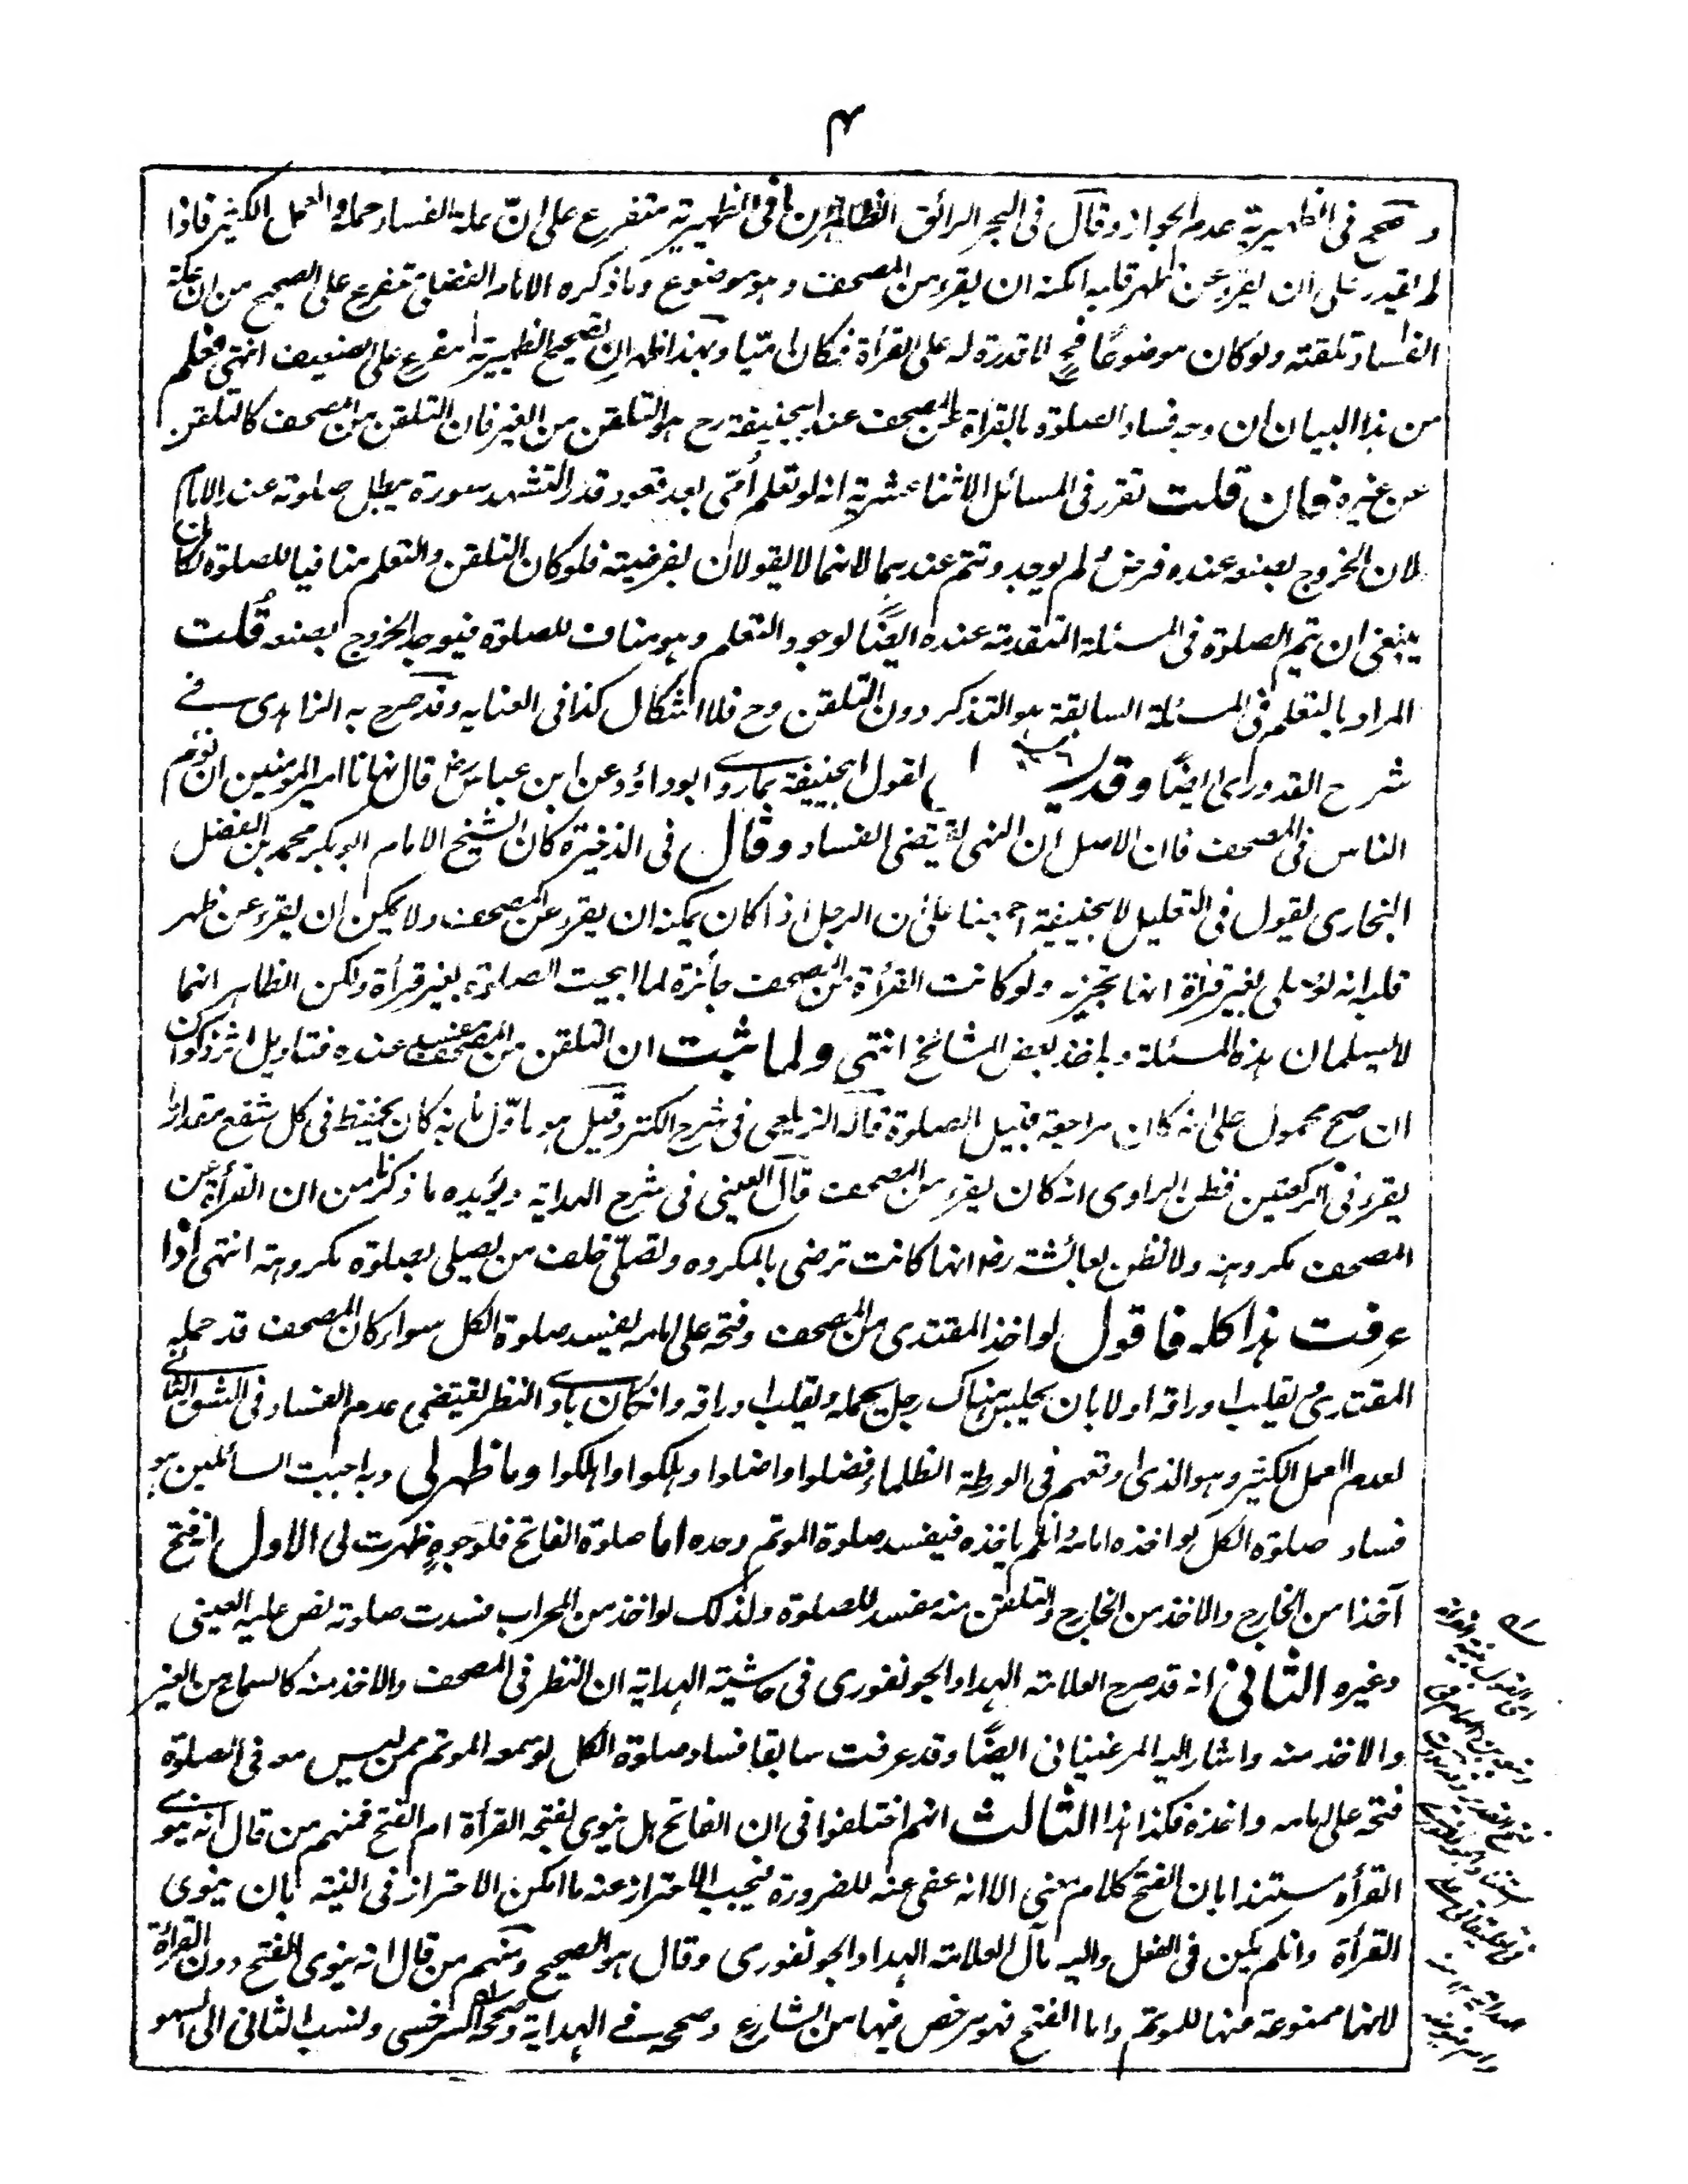 ۴
وصحح فى الظهيرية عدم الجواز وقال فى البحر الرائق الظاهر ان ما فى الظهيرية متفرع على ان علة الفساد حمله والعمل الكثير فاذا
لم يقدر على ان يقرء عن ظهر قلبه امكنه ان يقرء من المصحف وهو موضوع وما ذكره الامام الفضلى متفرع على الصحيح من ان علة
الفساد تلقنه ولو كان موضوعًا فح لا قدرة له على القرأة فكان اميّا وبهذا ظهر ان تصحيح الظهيرية مفرع على الضعيف انتهى فعلم
من هذا البيان ان وجه فساد الصلوة بالقرأة من المصحف عند ابيحنيفة رح هو التلقن من الغير فان التلقن من المصحف كالتلقن
عن غيره فان قلت تقرر فى المسائل الاثنا عشرية انه لو تعلم اُمّى بعد قعود قدر التشهد سورة يبطل صلوته عند الامام
لان الخروج بصنعه عنده فرض لم يوجد وتتم عندهما لانهما لا يقولان بفرضيته فلو كان التلقن والتعلم منافيا للصلوة لكان
ينبغى ان تتم الصلوة فى المسئلة المتقدمة عنده ايضًا لوجود التعلم وهو مناف للصلوة فيوجد الخروج بصنعه قُلت
المراد بالتعلم فى المسئلة السابقة هو التذكر دون التلقن وح فلا اشكال كذا فى العنايه وقد صرح به الزاهدى فى
شرح القدورى ايضًا وقد لقول ابيحنيفة بما روى ابوداؤد عن ابن عباس رض قال نهانا امير المومنين ان نؤم
الناس فى المصحف فان الاصل ان النهى يقتضى الفساد وقال فى الذخيرة كان الشيخ الامام ابو بكر محمد بن الفضل
البخارى يقول فى التعليل لابيحنيفة اجمعنا على ان الرجل اذا كان يمكنه ان يقرء من المصحف ولا يمكن ان يقرء عن ظهر
قلبه انه لو صلى بغير قرأة انها تجزيه ولو كانت القرأة من المصحف جائزة لما ابيحت الصلوة بغير قرأة ولكن الظاهر انهما
لا يسلمان هذه المسئلة وبه اخذ بعض المشائخ انتهى ولما ثبت ان التلقن من المصحف مفسد عنده فتاويل اثر ذكوان
ان صح محمول على انه كان مراجعة قبيل الصلوة قاله الزيلعى فى شرح الكنز وقيل هو ماوّل بانه كان يحفظ فى كل شفع مقدار ما
يقرء فى الركعتين فظن الراوى انه كان يقرء من المصحف قال العينى فى شرح الهداية ويؤيده ما ذكر من ان القرأة عن
المصحف مكروهة ولا نظن بعائشة رض انها كانت ترضى بالمكروه وتصلى خلف من يصلى بصلوة مكروهة انتهى اذا
عرفت هذا كله فاقول لو اخذ المقتدى من المصحف وفتح على امامه يفسد صلوة الكل سواء كان المصحف قد حمله
المقتدى ويقلب اوراقه اولا بان يجلس هناك رجل يحمله ويقلب اوراقه وان كان بادى النظر يقتضى عدم الفساد فى الشق الثانى
لعدم العمل الكثير وهو الذى اوقعهم فى الورطة الظلماء فضلوا واضلوا وهلكوا واهلكوا وما ظهر لى وبه اجبت السائلين هو
فساد صلوة الكل لو اخذه امامه وان لم ياخذه فيفسد صلوة الموتم وحده اما صلوة الفاتح فلوجوهٍ ظهرت لى الاول انه فتح
آخذا من الخارج والاخذ من الخارج والتلقن منه مفسد للصلوة ولذلك لو اخذ من المحراب فسدت صلوته نص عليه العينى
وغيره الثانى انه قد صرح العلامة الهداد الجونفورى فى حاشية الهداية ان النظر فى المصحف والاخذ منه كالسماع من الغير
والاخذ منه واشار اليه المرغينانى ايضًا وقد عرفت سابقا فساد صلوة الكل لو سمعه الموتم ممن ليس معه فى الصلوة
فتحه على امامه واخذه فكذا هذا الثالث انهم اختلفوا فى ان الفاتح هل ينوى بفتحه القرأة ام الفتح فمنهم من قال انه ينوى
القرأة مستندا بان الفتح كلام معنى الا انه عفى عنه للضرورة فيجب الاحتراز عنه ما امكن الاحتراز فى النية بان ينوى
القرأة وان لم يمكن فى الفعل واليه مال العلامة الهداد الجونفورى وقال هو الصحيح ومنهم من قال انه ينوى الفتح دون القرأة
لانها ممنوعة منها للموتم واما الفتح فهو مرخص فيها من الشارع وصححه فى الهداية وصححه السرخسى ونسب الثانى الى السهو